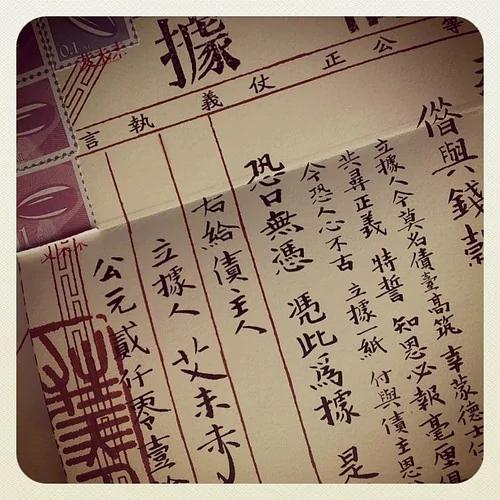 據
公正仗義執言
偕與錢款
立據人今莫名債臺高筑 幸蒙德士仁
共尋正義 特誓 知恩必報毫厘俱
今恐人心不古 立據一紙 付與債主恩
恐口無憑 憑此爲據 是
右給債主人
立據人 艾未未
公元貳仟零壹
0.1